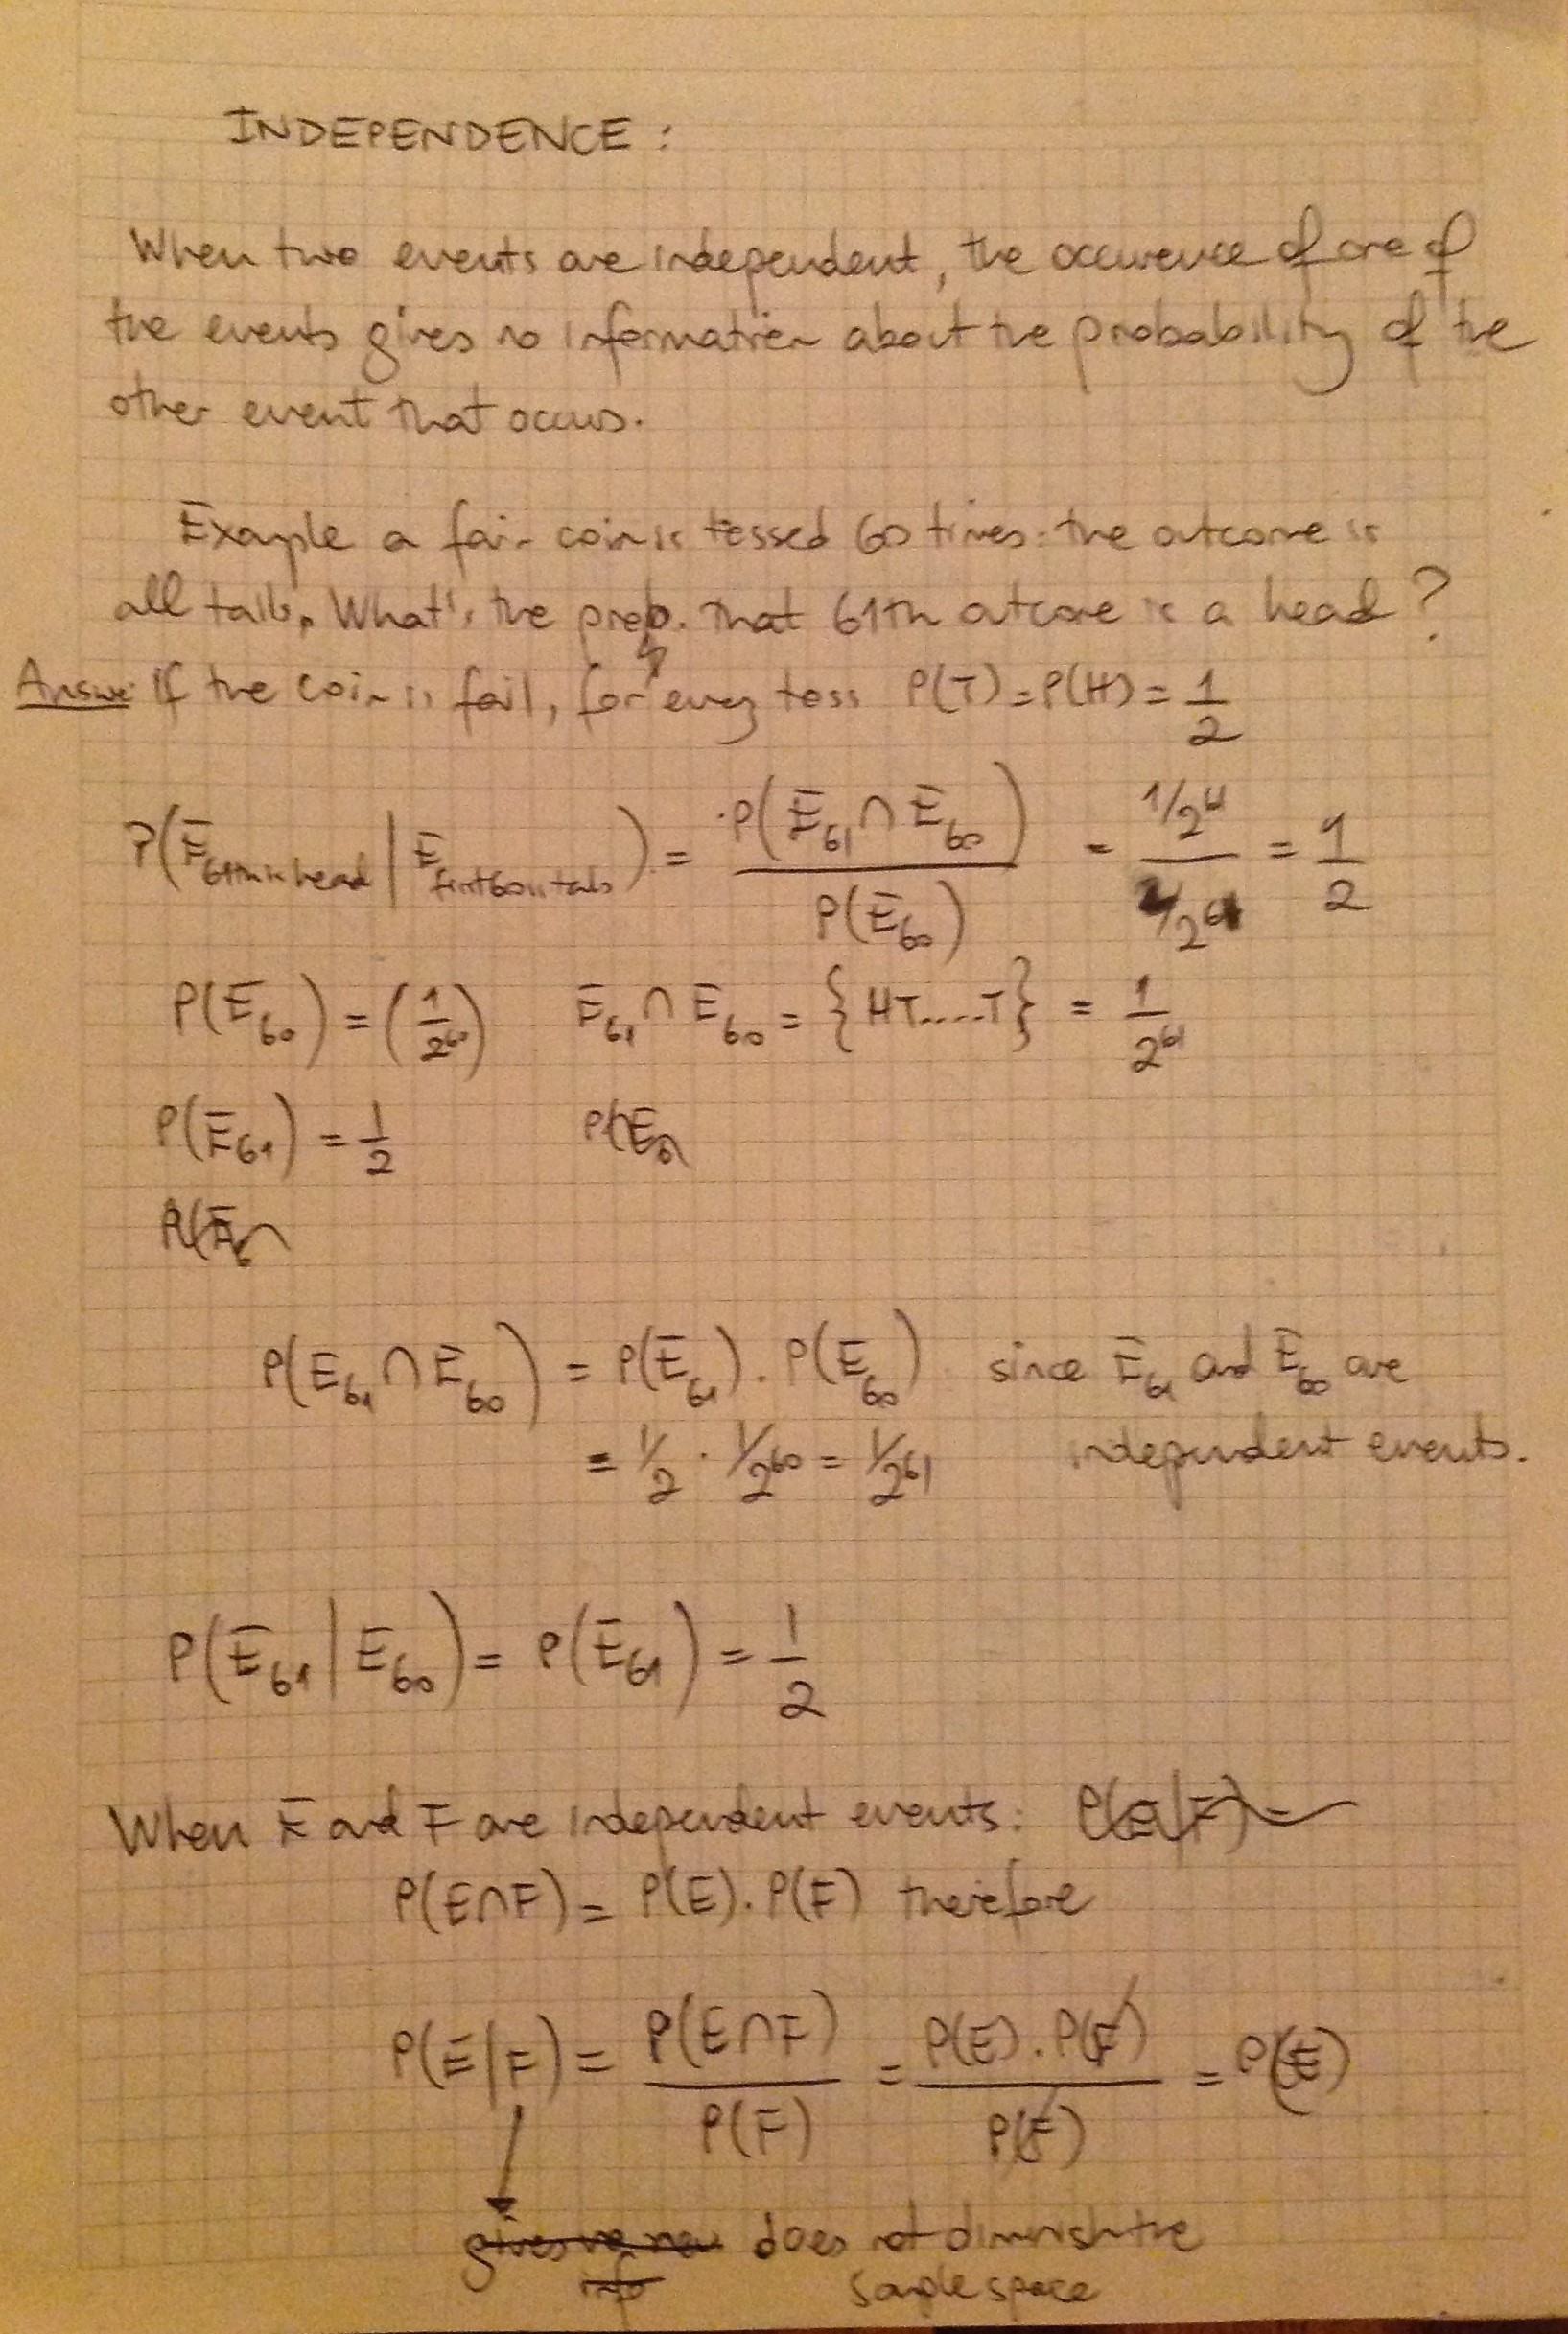 INDEPENDENCE :
When two events are independent, the occurence of one of
the events gives no information about the probability of the
other event that occurs.
Example a fair coin is tossed 60 times: the outcome is
all tails. What's the prob. that 61th outcome is a head?
Answer: If the coin is fail, for every toss P(T) = P(H) = 1/2
P(E_61th is head | E_first 60 is tails) = P(E_61 ∩ E_60) / P(E_60) = (1/2^61) / (1/2^60) = 1/2
P(E_60) = (1/2^60)   E_61 ∩ E_60 = {HT.....T} = 1/2^61
P(E_61) = 1/2
P(E_61 ∩ E_60) = P(E_61) . P(E_60) since E_61 and E_60 are
= 1/2 . 1/2^60 = 1/2^61 independent events.
P(E_61 | E_60) = P(E_61) = 1/2
When E and F are independent events: P(E|F) =
P(E∩F) = P(E) . P(F) therefore
P(E|F) = P(E∩F) / P(F) = P(E) . P(F) / P(F) = P(E)
gives no new does not diminish the
info sample space